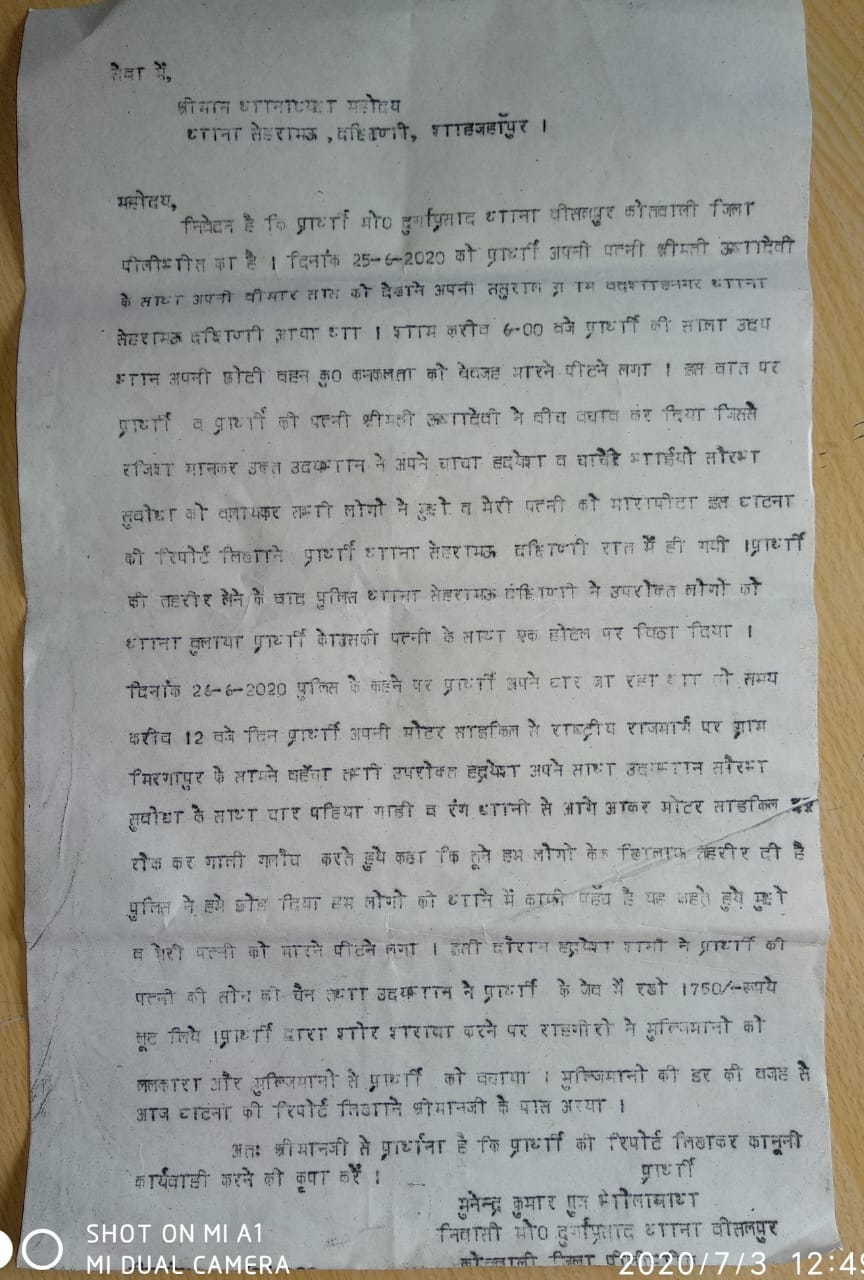 सेवा में,
श्रीमान थानाध्यक्ष महोदय
थाना सेहरामऊ, दक्षिणी, शाहजहाँपुर ।
महोदय,
निवेदन है कि प्रार्थी मो0 दुर्गाप्रसाद थाना वीसलपुर कोतवाली जिला
पीलीभीत का है । दिनांक 25-6-2020 को प्रार्थी अपनी पत्नी श्रीमती ऊषादेवी
के साथ अपनी वीमार सास को देखने अपनी ससुराल ग्राम वदशाहनगर थाना
सेहरामऊ दक्षिणी आया था । शाम करीव 6-00 वजे प्रार्थी की साला उदय
भान अपनी छोटी वहन कु0 कनकलता को वेवजह मारने पीटने लगा । इस वात पर
प्रार्थी व प्रार्थी की पत्नी श्रीमती ऊषादेवी ने वीच वचाव कर दिया जिससे
रजिश मानकर उक्त उदयभान ने अपने चाचा हृदयेश व चाचेरे भाईयो सौरभ
सुवोध को वुलायकर सभी लोगो ने मुझे व मेरी पत्नी को मारापीटा इस घटना
की रिपोर्ट लिखाने प्रार्थी थाना सेहरामऊ दक्षिणी रात में ही गयी ।प्रार्थी
की तहरीर लेने के वाद पुलिस थाना सेहरामऊ दक्षिणी ने उपरोक्त लोगो को
थाना वुलाया प्रार्थी कोउसकी पत्नी के साथ एक होटल पर विठा दिया ।
दिनांक 26-6-2020 पुलिस के कहने पर प्रार्थी अपने घर जा रहा था तो समय
करीव 12 वजे दिन प्रार्थी अपनी मोटर साइकिल से राष्ट्रीय राजमार्ग पर ग्राम
मिरगापुर के सामने पहुँचा तभी उपरोक्त हृदयेश अपने साथ उदयभान सौरभ
सुवोध के साथ चार पहिया गाडी व रंग धानी से आगे आकर मोटर साइकिल
रोक कर गाली गलौच करते हुये कहा कि तूने हम लोगो के खिलाफ तहरीर दी है
पुलिस ने हमे छोड दिया हम लोगो की थाने में काफी पहुँच है यह कहते हुये मुझे
व मेरी पत्नी को मारने पीटने लगा । इसी दौरान हृदयेश शर्मा ने प्रार्थी की
पत्नी की सोन की चैन तथा उदयभान ने प्रार्थी के जेव में रखे 1750/-रूपये
लूट लिये ।प्रार्थी द्वारा शोर शरावा करने पर राहगीरो ने मुल्जिमानो को
ललकारा और मुल्जिमानो से प्रार्थी को वचाया । मुल्जिमानो की डर की वजह से
आज घटना की रिपोर्ट लिखाने श्रीमानजी के पास आया ।
अतः श्रीमानजी से प्रार्थना है कि प्रार्थी की रिपोर्ट लिखकर कानूनी
कार्यवाही करने की कृपा करें ।
प्रार्थी
मुनेन्द्र कुमार पुत्र भोलानाथ
निवासी मो0 दुर्गाप्रसाद थाना वीसलपुर
कोतवाली जिला पीलीभीत
SHOT ON MI A1
MI DUAL CAMERA
2020/7/3 12:49